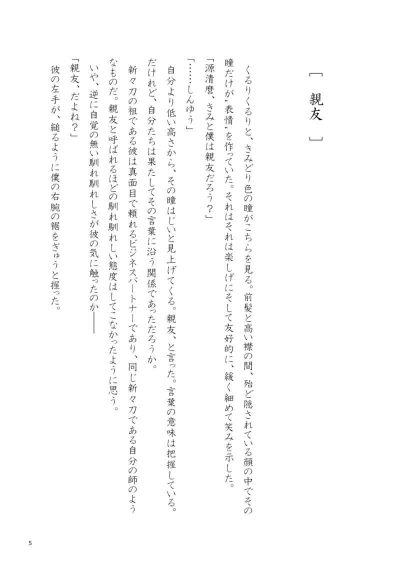 [ 親友 ]
くるりくるりと、きみどり色の瞳がこちらを見る。前髪と高い襟の間、殆ど隠されている顔の中でその
瞳だけが〝表情〟を作っていた。それはそれは楽しげにそして友好的に、緩く細めて笑みを示した。
「源清麿、きみと僕は親友だろう？」
「……しんゆう」
自分より低い高さから、その瞳はじいと見上げてくる。親友、と言った。言葉の意味は把握している。
だけれど、自分たちは果たしてその言葉に沿う関係であっただろうか。
新々刀の祖である彼は真面目で頼れるビジネスパートナーであり、同じ新々刀である自分の師のよう
なものだ。親友と呼ばれるほどの馴れ馴れしい態度はしてこなかったように思う。
いや、逆に自覚の無い馴れ馴れしさが彼の気に触ったのか――
「親友、だよね？」
彼の左手が、縋るように僕の右腕の裾をぎゅうと握った。
5